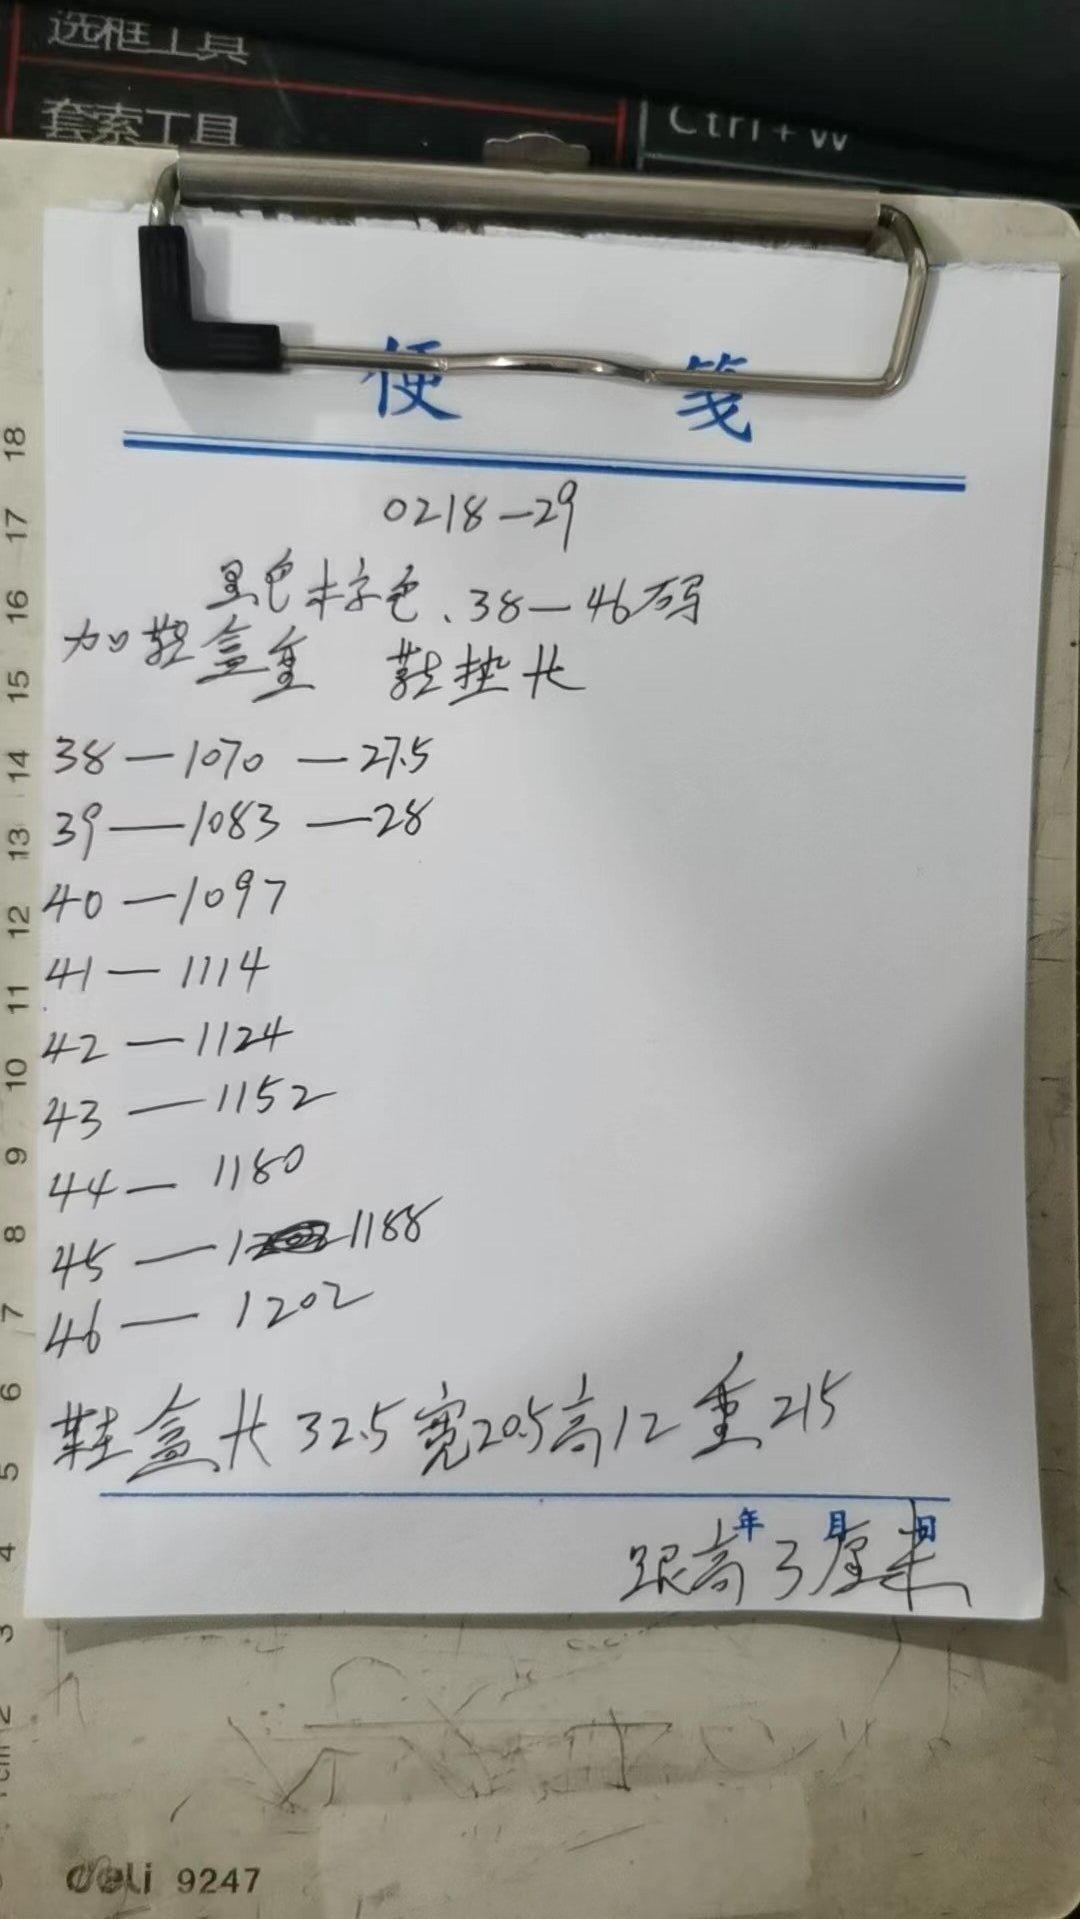 选框工具
套索工具
Ctrl+W
便 笺
0218-29
黑色 棕色、38-46码
加鞋盒重 鞋垫长
38-1070-27.5
39-1083-28
40-1097
41-1114
42-1124
43-1152
44-1180
45-1188
46-1202
鞋盒长32.5宽20.5高12重215
年 月 日
跟高3厘米
18
17
16
15
14
13
12
11
10
9
8
7
6
5
4
3
2
1cm
deli 9247